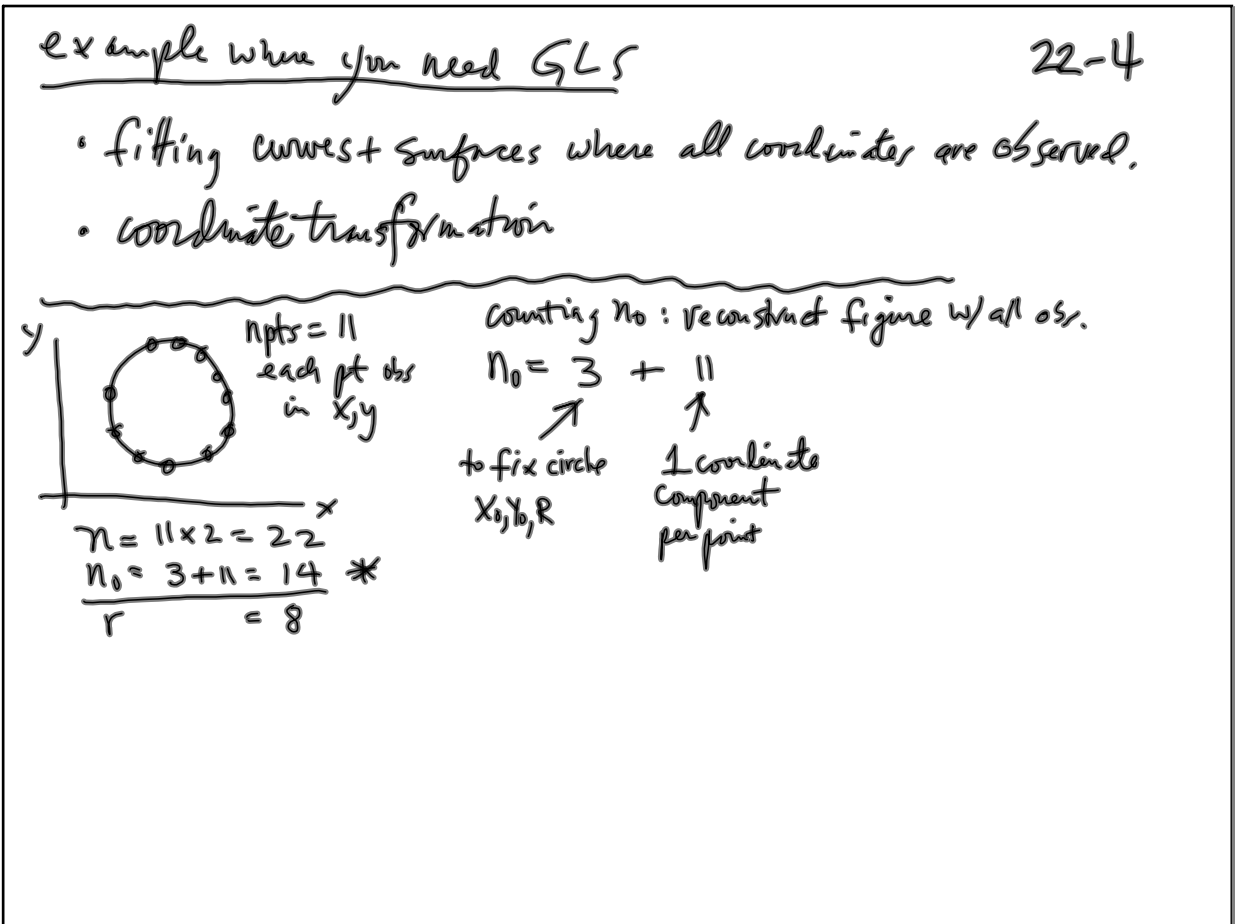 example where you need GLS
22-4
• fitting curves + surfaces where all coordinates are observed.
• coordinate transformation
y
npts = 11
each pt obs
in x,y
x
n = 11 × 2 = 22
n₀ = 3 + 11 = 14 *
r = 8
counting n₀ : reconstruct figure w/ all obs.
n₀ = 3 + 11
to fix circle
X₀, Y₀, R
1 coordinate
component
per point